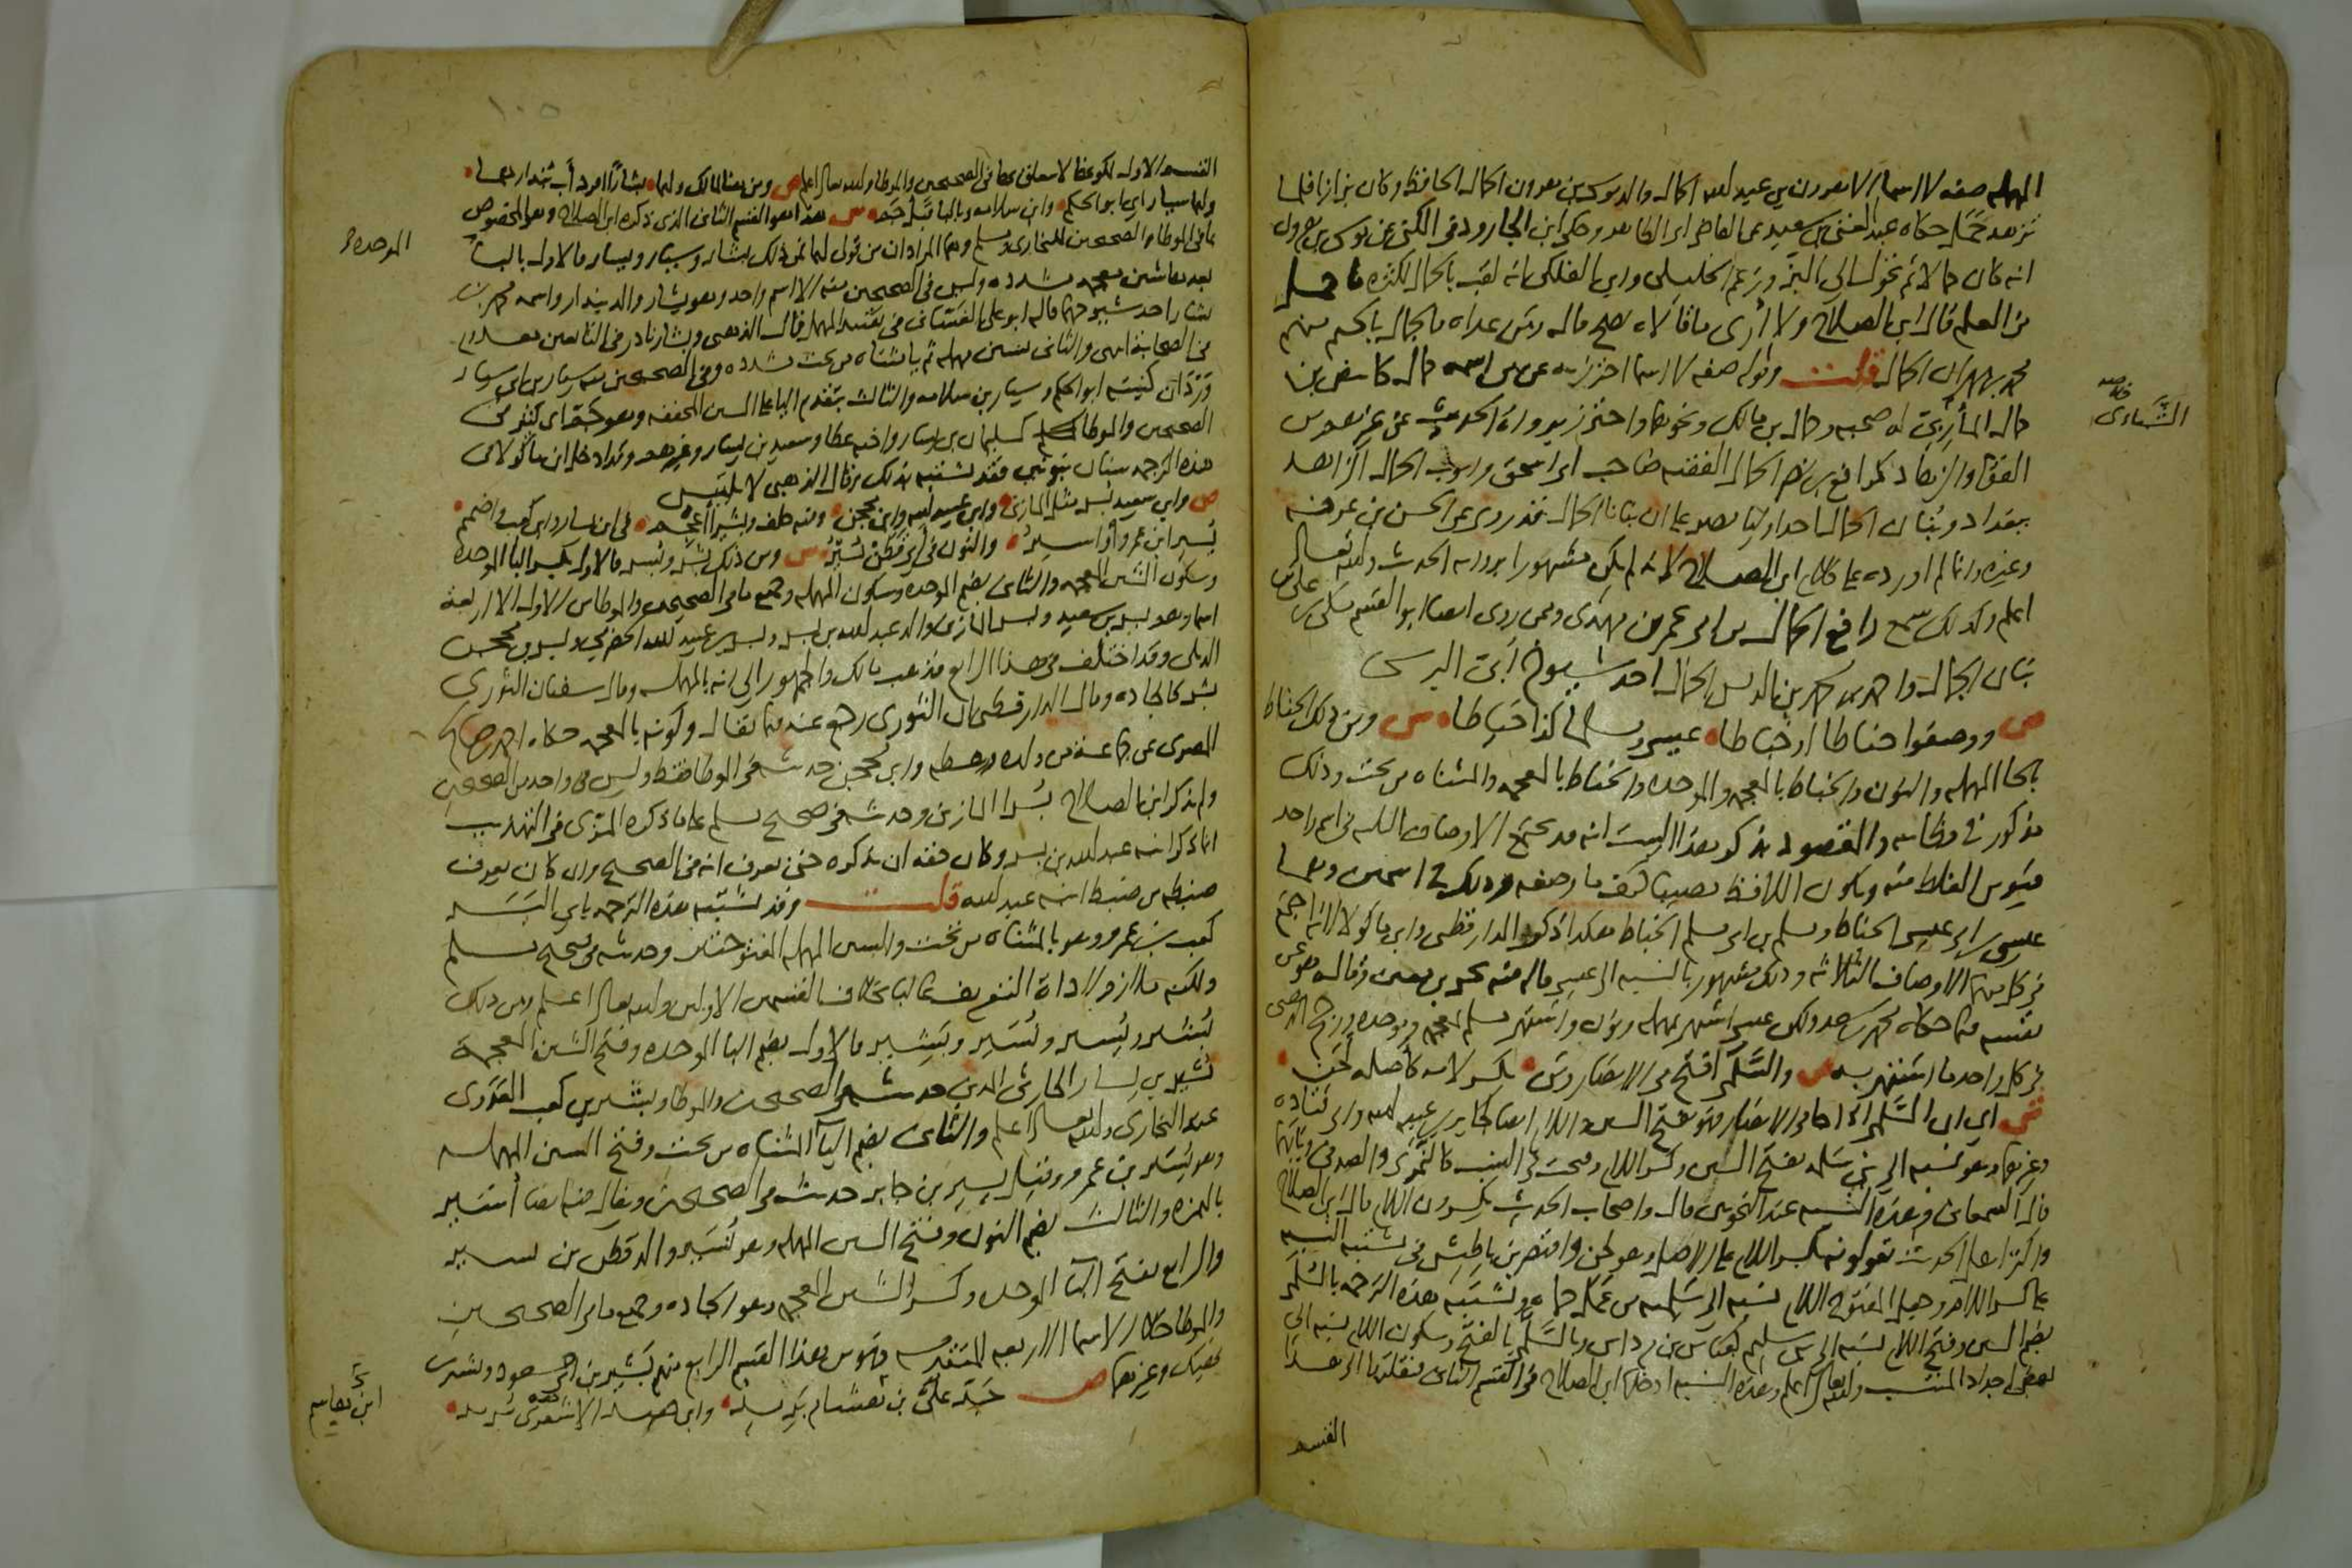 المهمله صفه لا اسما الا هرون بن عبد الله الحمال والد موسى بن هرون الحمال الحافظ وكان بزازا فلما
تزهد حمل حكاه عبد الغني بن سعيد عن القاضي ابي الطاهر وحكى ابن الجارود في الكنى عن موسى بن هرون
انه كان حمالا ثم تحول الى البز وزعم الخليلي وابن الفلكي انه لقب بالحمال لكثرة ما حمل
من العلم قال ابن الصلاح ولا ارى ما قالاه يصح قال ومن عداه فالجمال بالجيم منهم
محمد بن مهران الجمال قلت وقوله صفه لا اسما احترز به عن من اسمه حمال كابيض بن
حمال المأربي له صحبه وحمال بن مالك ونحوهما واحترز برواة الحديث عن غيرهم من
الفقها والزهاد كرافع بن نصر الحمال الفقيه صاحب ابي اسحق وايوب الحمال الزاهد
ببغداد وبنان الحمال احد اوليا مصر على ان بنانا الحمال قد روى عن الحسن بن عرفه
وغيره وانما لم اورده على كلام ابن الصلاح لانه لم يكن مشهورا برواية الحديث والله تعالى
اعلم وكذلك سمع رافع الحمال من ابي عمر بن مهدي وممن روى ايضا ابو القسم مكي بن علي بن
بنان الحمال واحمد بن محمد بن الدبس الحمال احد شيوخ ابي النرسي
ص ووصفوا حناطا او خباطا عيسى ومسلما كذا خياطا ش ومن ذلك الحناط
بالحا المهمله والنون والخباط بالمعجمه والموحده والخياط بالمعجمه والمثناه من تحت وذلك
مذكور في مظانه والمقصود بذكر هذا البيت انه قد تجتمع الاوصاف الثلثه في اسم واحد
فيؤمن الغلط فيه ويكون اللافظ مصيبا كيف ما وصفه وذلك في اسمين وهما
عيسى بن ابي عيسى الحناط ومسلم بن ابي مسلم الخباط هكذا ذكر الدارقطني وابن ماكولا انه اجتمع
في كل منهما الاوصاف الثلاثه وذلك مشهور بالنسبه الى عيسى قاله فيه يحيى بن معين وقاله هو عن
نفسه فيما حكاه محمد بن سعد ولكن عيسى اشتهر بمهمله ونون واشتهر مسلم بمعجمه وموحده ورجح الذهبي
في كل واحد ما اشتهر به ص والسلمي افتح في الانصار ومن بكسر لامه كاصله لحن
ش اي ان السلمي اذا جا في الانصار فهو بفتح السين واللام ايضا كجابر بن عبد الله وابي قتاده
وغيرهما وهو نسبه الى بني سلمه بفتح السين وكسر اللام وفتحت في النسب كالنمري والصدفي وبابهما
قال السمعاني وهذه النسبه عند النحويين قال واصحاب الحديث يكسرون اللام قال ابن الصلاح
واكثر اهل الحديث يقولونه بكسر اللام على الاصل وهو لحن واقتصر ابن باطيش في مشتبه النسبه
على كسر اللام وجعل المفتوح اللام نسبه الى سلميه من عمل حماه وتشتبه هذه الترجمه بالسلمي
بضم السين وفتح اللام نسبه الى بني سليم كعباس بن مرداس وبالسلمي بالفتح وسكون اللام نسبه الى
بعض اجداد المنتسب والله تعالى اعلم وهذه النسبه ادخلها ابن الصلاح في القسم الثاني فنقلتها الى هذا
القسم
القسم الاول لكونها لا تعلق لها في الصحيحين والموطا والله تعالى اعلم ص ومن هنا لمالك ولهما بشارا افرد اب بندارهما
ولهما سيار اي ابو الحكم وابن سلامه وباليا قبل جم ش هذا هو القسم الثاني الذي ذكره ابن الصلاح وهو المخصوص
بما في الموطا والصحيحين للبخاري ومسلم وهما المرادان من قولي لهما فمن ذلك بشار وسيار ويسار فالاول بالبا
الموحده
بعدها شين معجمه مشدده وليس في الصحيحين منه الا اسم واحد وهو بشار والد بندار واسمه محمد بن
بشار احد شيوخهما قاله ابو علي الغساني في تقييد المهمل قال الذهبي وبشار نادر في التابعين معدوم
في الصحابه انتهى والثاني بسين مهمله ثم يا مثناه من تحت مشدده وفي الصحيحين منه سيار بن ابي سيار
وردان كنيته ابو الحكم وسيار بن سلامه والثالث بتقديم اليا على السين المخففه وهو جم اي كثير في
الصحيحين والموطا كسليمان بن يسار واخيه عطا وسعيد بن يسار وغيرهم وقد ادخل ابن ماكولا في
هذه الترجمه سنان بنونين فقد يشتبه بذلك وقال الذهبي لا يلتبس
ص وابن سعيد بسر مثل المازني وابن عبيد الله وابن محجن وفيه خلف وبشيرا اعجم في ابن يسار وابن كعب واضمم
يسير ابن عمرو او اسير والنون في ابي قطن نسير ش ومن ذلك بشر وبسر فالاول بكسر البا الموحده
وسكون الشين المعجمه والثاني بضم الموحده وسكون المهمله وجميع ما في الصحيحين والموطا من الاول الا اربعة
اسما وهم بسر بن سعيد وبسر المازني والد عبد الله بن بسر وبسر بن عبيد الله الحضرمي وبسر بن محجن
الديلي وقد اختلف في هذا الرابع فذهب مالك والجمهور الى انه بالمهمله وقال سفيان الثوري
بشر كالجاده وقال الدارقطني ان الثوري رجع عنه فيما يقال وكونه بالمعجمه حكاه احمد بن صالح
المصري عن جماعة من ولده ورهطه وابن محجن حديثه في الموطا فقط وليس في واحد من الصحيحين
ولم يذكر ابن الصلاح بسرا المازني وحديثه في صحيح مسلم على ما ذكره المزي في التهذيب
انما ذكر ابنه عبد الله بن بسر وكان حقه ان يذكره حتى يعرف انه في الصحيح وان كان يعرف
ضبطه من ضبط ابنه عبد الله قلت وقد تشتبه هذه الترجمه بابي اليسر
كعب بن عمرو وهو بالمثناه من تحت والسين المهمله المفتوحتين وحديثه في صحيح مسلم
ولكنه ملازم لاداة التعريف غالبا بخلاف القسمين الاولين والله تعالى اعلم ومن ذلك
بشير ويسير ونسير وبشير فالاول بضم البا الموحده وفتح الشين المعجمة
بشير بن يسار الحارثي المدني حديثه في الصحيحين والموطا وبشير بن كعب العدوي
عند البخاري والله تعالى اعلم والثاني بضم اليا المثناه من تحت وفتح السين المهمله
وهو يسير بن عمرو وقيل يسير بن جابر حديثه في الصحيحين ويقال فيه ايضا اسير
بالهمزه والثالث بضم النون وفتح السين المهمله وهو نسير والد قطن بن نسير
والرابع بفتح البا الموحده وكسر الشين المعجمه وهو الجاده وجميع ما في الصحيحين
والموطا خلا الاسما الاربعه المتقدمه فهو من هذا القسم الرابع منهم بشير بن ابي مسعود وبشير بن
نهيك وغيرهما ص جد علي بن هشام بريد وابن حفيد الاشعري بريد